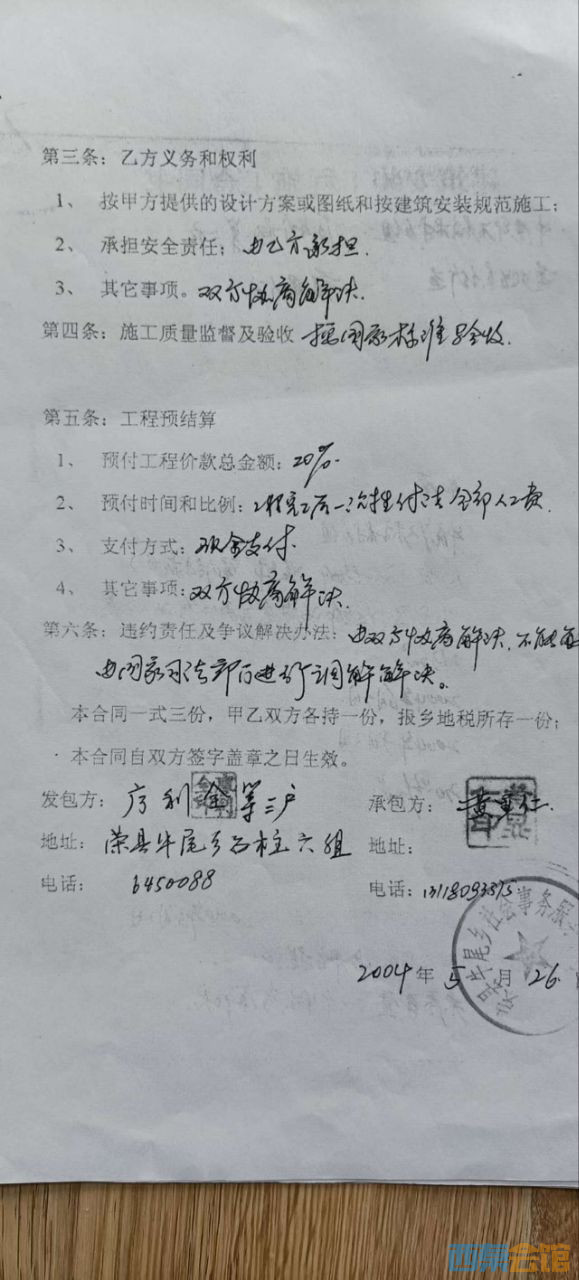 第三条：乙方义务和权利
1、 按甲方提供的设计方案或图纸和按建筑安装规范施工；
2、 承担安全责任；由乙方承担.
3、 其它事项。双方协商解决.
第四条：施工质量监督及验收 按国家标准验收.
第五条：工程预结算
1、 预付工程价款总金额：20%.
2、 预付时间和比例：工程完工后一次性付清全部人工费.
3、 支付方式：现金支付.
4、 其它事项：双方协商解决.
第六条：违约责任及争议解决办法：由双方协商解决.不能
由国家司法部门进行调解解决。
本合同一式三份，甲乙双方各持一份，报乡地税所存一份；
本合同自双方签字盖章之日生效。
发包方： 利金等三户 承包方：黄 仁.
地址： 荣县牛尾乡石柱六组 地址：
电话： 6450088 电话：
2004年5月26.
牛尾乡社会事务服
西荣会馆